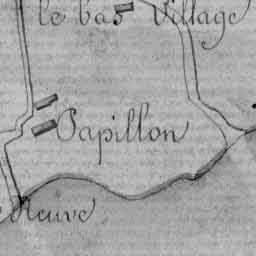 le bas Village
Papillon
Neuve